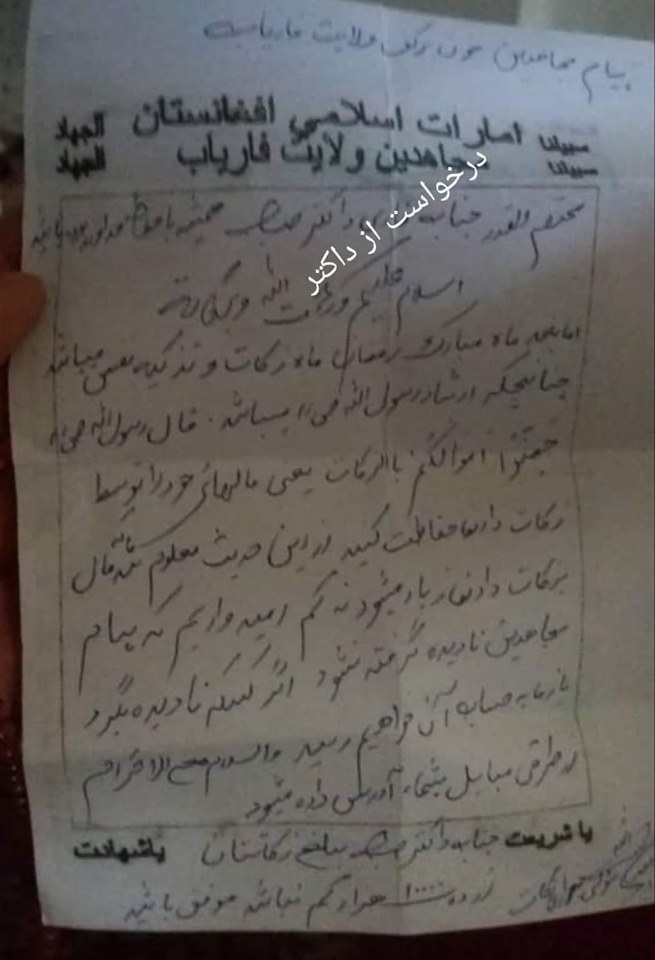 پیام مجاهدین ولایت فاریاب
سبیلنا امارات اسلامي افغانستان الجهاد
سبیلنا مجاهدین ولایت فاریاب الجهاد
درخواست از داکتر
محترم القدر جناب داکتر صاحب همیشه با
اسلام علیکم و الله وبرکاته
اما بعد ماه مبارک رمضان ماه زکات و تذکیه نفس میباشد
چنانچکه ارشاد رسول الله میباشد. قال رسول الله
اموالکم باالزکات یعنی مالهای خود را توسط
زکات دادن حفاظت کنید از این حدیث معلوم شد مال
بزکات دادن زیاد میشود نه کم امید واریم که پیام
مجاهدین نادیده گرفته نشود اگر کسیکه نادیده بگیرد
باز ما به حساب آن خواهیم رسید والسلام مع الاحترام
از طرق مبایل بشما آدرس داده میشود
یا شریعت جناب داکتر صاحب مبلغ زکاتتان یا شهادت
از ده ۱۰۰۰۰ هزار کم نباشد موفق باشید